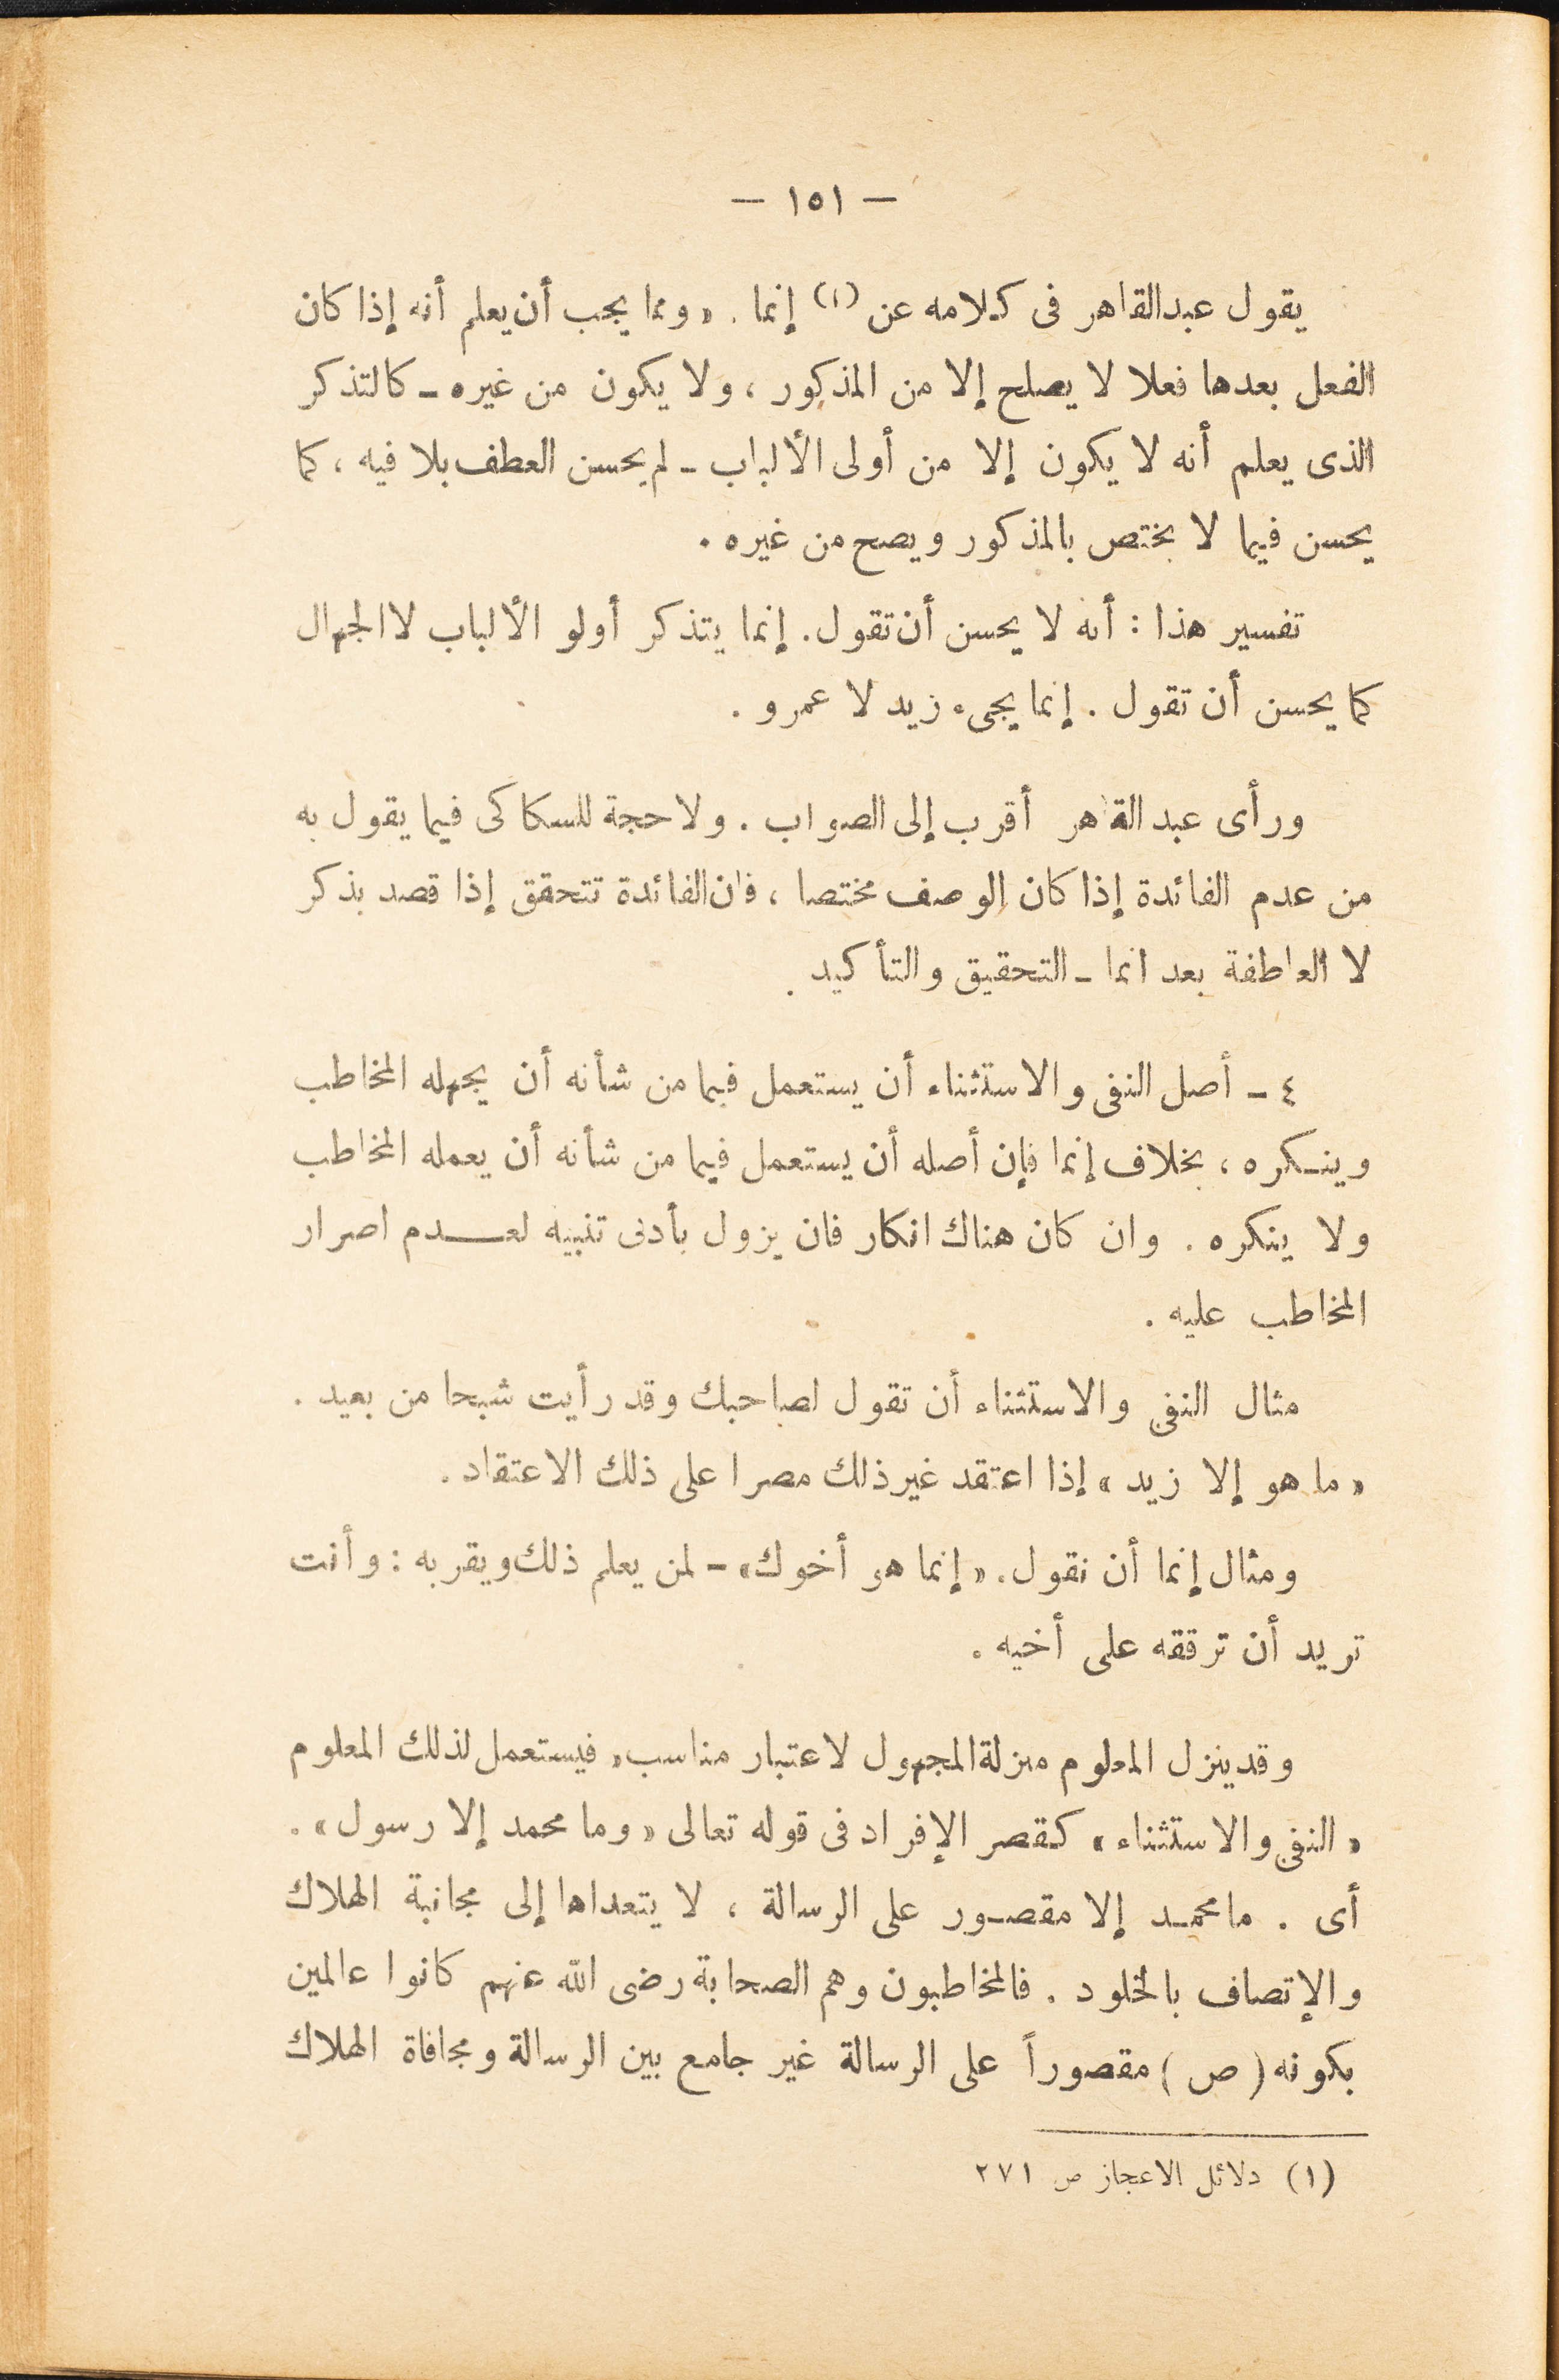 — ١٥١ —
يقول عبد القاهر فى كلامه عن (١) إنما . « ومما يجب أن يعلم أنه إذا كان
الفعل بعدها فعلا لا يصلح إلا من المذكور ، ولا يكون من غيره ـ كالتذكر
الذى يعلم أنه لا يكون إلا من أولى الألباب ـ لم يحسن العطف بلا فيه ، كما
يحسن فيما لا يختص بالمذكور ويصح من غيره .
تفسير هذا : أنه لا يحسن أن تقول . إنما يتذكر أولو الألباب لا الجهال
كما يحسن أن تقول . إنما يجىء زيد لا عمرو .
ورأى عبد القاهر أقرب إلى الصواب . ولا حجة للسكاكى فيما يقول به
من عدم الفائدة إذا كان الوصف مختصا ، فان الفائدة تتحقق إذا قصد بذكر
لا العاطفة بعد انما ـ التحقيق والتأكيد .
٤ ـ أصل النفى والاستثناء أن يستعمل فيما من شأنه أن يجهله المخاطب
وينكره ، بخلاف إنما فإن أصله أن يستعمل فيما من شأنه أن يعمله المخاطب
ولا ينكره . وان كان هناك انكار فان يزول بأدنى تنبيه لعدم اصرار
المخاطب عليه .
مثال النفى والاستثناء أن تقول لصاحبك وقد رأيت شبحا من بعيد .
« ما هو إلا زيد » إذا اعتقد غير ذلك مصرا على ذلك الاعتقاد .
ومثال إنما أن نقول . « إنما هو أخوك» ـ لمن يعلم ذلك ويقر به : وأنت
تريد أن ترققه على أخيه .
وقد ينزل المعلوم منزلة المجهول لاعتبار مناسب» فيستعمل لذلك المعلوم
« النفى والاستثناء » كقصر الإفراد فى قوله تعالى « وما محمد إلا رسول» .
أى . ما محمد إلا مقصور على الرسالة ، لا يتعداها إلى مجانبة الهلاك
والإتصاف بالخلود . فالمخاطبون وهم الصحابة رضى الله عنهم كانوا عالمين
بكونه ( ص ) مقصوراً على الرسالة غير جامع بين الرسالة ومجافاة الهلاك
(١) دلائل الاعجاز ص ٢٧١